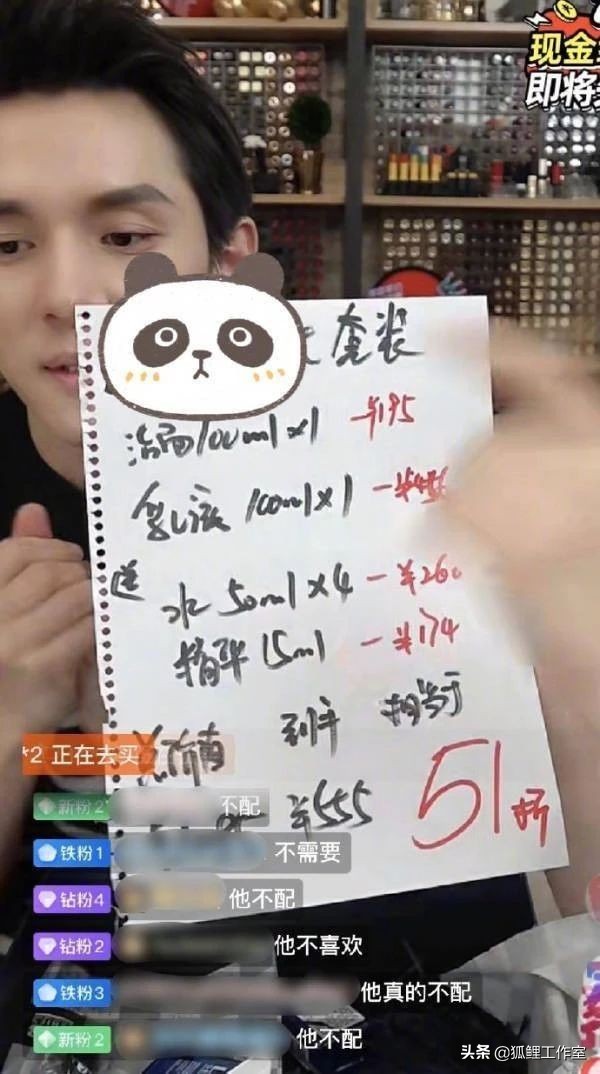 现金
即将
套装
洁面100ml×1 ¥195
乳液100ml×1 -¥456
送
水50ml×4 -¥260
精华15ml -¥174
总价值 到手 相当于
¥555 51折
*2 正在去买
新粉2 不配
铁粉1 不需要
钻粉4 他不配
钻粉2 他不喜欢
铁粉3 他真的不配
新粉2 他不配
头条 @狐狸工作室